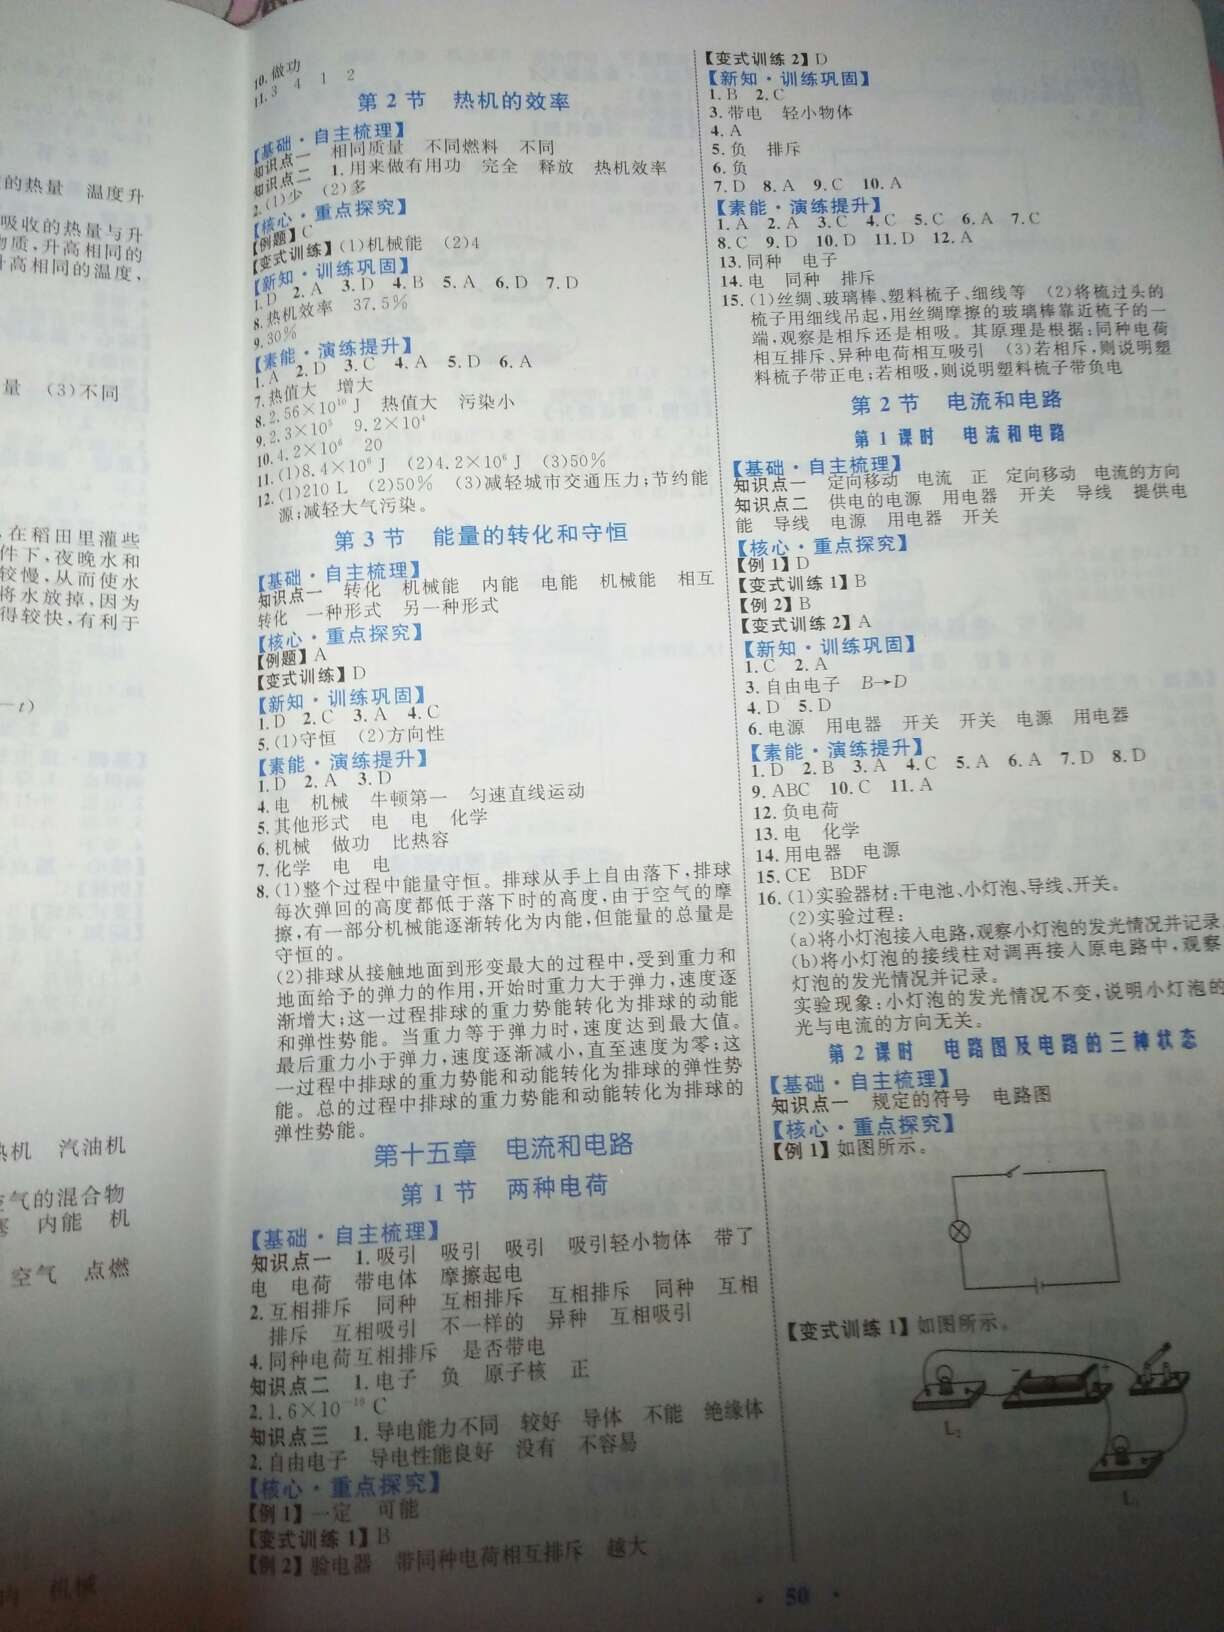 的热量 温度升
吸收的热量与升
物质,升高相同的
升高相同的温度,
量 (3)不同
在稻田里灌些
件下,夜晚水和
较慢,从而使水
将水放掉,因为
得较快,有利于
—t)
热机 汽油机
空气的混合物
塞 内能 机
空气 点燃
机械
10.做功
11.3 4 1 2
第2节 热机的效率
【基础·自主梳理】
知识点一 相同质量 不同燃料 不同
知识点二 1.用来做有用功 完全 释放 热机效率
2.(1)少 (2)多
【核心·重点探究】
【例题】C
【变式训练】(1)机械能 (2)4
【新知·训练巩固】
1.D 2.A 3.D 4.B 5.A 6.D 7.D
8.热机效率 37.5%
9.30%
【素能·演练提升】
1.A 2.D 3.C 4.A 5.D 6.A
7.热值大 增大
8.2.56×10¹⁰ J 热值大 污染小
9.2.3×10⁵ 9.2×10⁴
10.4.2×10⁶ 20
11.(1)8.4×10⁶ J (2)4.2×10⁶ J (3)50%
12.(1)210 L (2)50% (3)减轻城市交通压力;节约能
源;减轻大气污染。
第3节 能量的转化和守恒
【基础·自主梳理】
知识点一 转化 机械能 内能 电能 机械能 相互
转化 一种形式 另一种形式
【核心·重点探究】
【例题】A
【变式训练】D
【新知·训练巩固】
1.D 2.C 3.A 4.C
5.(1)守恒 (2)方向性
【素能·演练提升】
1.D 2.A 3.D
4.电 机械 牛顿第一 匀速直线运动
5.其他形式 电 电 化学
6.机械 做功 比热容
7.化学 电 电
8.(1)整个过程中能量守恒。排球从手上自由落下,排球
每次弹回的高度都低于落下时的高度,由于空气的摩
擦,有一部分机械能逐渐转化为内能,但能量的总量是
守恒的。
(2)排球从接触地面到形变最大的过程中,受到重力和
地面给予的弹力的作用,开始时重力大于弹力,速度逐
渐增大;这一过程排球的重力势能转化为排球的动能
和弹性势能。当重力等于弹力时,速度达到最大值。
最后重力小于弹力,速度逐渐减小,直至速度为零;这
一过程中排球的重力势能和动能转化为排球的弹性势
能。总的过程中排球的重力势能和动能转化为排球的
弹性势能。
第十五章 电流和电路
第1节 两种电荷
【基础·自主梳理】
知识点一 1.吸引 吸引 吸引 吸引轻小物体 带了
电 电荷 带电体 摩擦起电
2.互相排斥 同种 互相排斥 互相排斥 同种 互相
排斥 互相吸引 不一样的 异种 互相吸引
4.同种电荷互相排斥 是否带电
知识点二 1.电子 负 原子核 正
2.1.6×10⁻¹⁹ C
知识点三 1.导电能力不同 较好 导体 不能 绝缘体
2.自由电子 导电性能良好 没有 不容易
【核心·重点探究】
【例1】一定 可能
【变式训练1】B
【例2】验电器 带同种电荷相互排斥 越大
【变式训练2】D
【新知·训练巩固】
1.B 2.C
3.带电 轻小物体
4.A
5.负 排斥
6.负
7.D 8.A 9.C 10.A
【素能·演练提升】
1.A 2.A 3.C 4.C 5.C 6.A 7.C
8.C 9.D 10.D 11.D 12.A
13.同种 电子
14.电 同种 排斥
15.(1)丝绸、玻璃棒、塑料梳子、细线等 (2)将梳过头的
梳子用细线吊起,用丝绸摩擦的玻璃棒靠近梳子的一
端,观察是相斥还是相吸。其原理是根据:同种电荷
相互排斥、异种电荷相互吸引 (3)若相斥,则说明塑
料梳子带正电;若相吸,则说明塑料梳子带负电
第2节 电流和电路
第1课时 电流和电路
【基础·自主梳理】
知识点一 定向移动 电流 正 定向移动 电流的方向
知识点二 供电的电源 用电器 开关 导线 提供电
能 导线 电源 用电器 开关
【核心·重点探究】
【例1】D
【变式训练1】B
【例2】B
【变式训练2】A
【新知·训练巩固】
1.C 2.A
3.自由电子 B→D
4.D 5.D
6.电源 用电器 开关 开关 电源 用电器
【素能·演练提升】
1.D 2.B 3.A 4.C 5.A 6.A 7.D 8.D
9.ABC 10.C 11.A
12.负电荷
13.电 化学
14.用电器 电源
15.CE BDF
16.(1)实验器材:干电池、小灯泡、导线、开关。
(2)实验过程:
(a)将小灯泡接入电路,观察小灯泡的发光情况并记录
(b)将小灯泡的接线柱对调再接入原电路中,观察
灯泡的发光情况并记录。
实验现象:小灯泡的发光情况不变,说明小灯泡的
光与电流的方向无关。
第2课时 电路图及电路的三种状态
【基础·自主梳理】
知识点一 规定的符号 电路图
【核心·重点探究】
【例1】如图所示。
【变式训练1】如图所示。
− +
L₂
L₁
· 50 ·